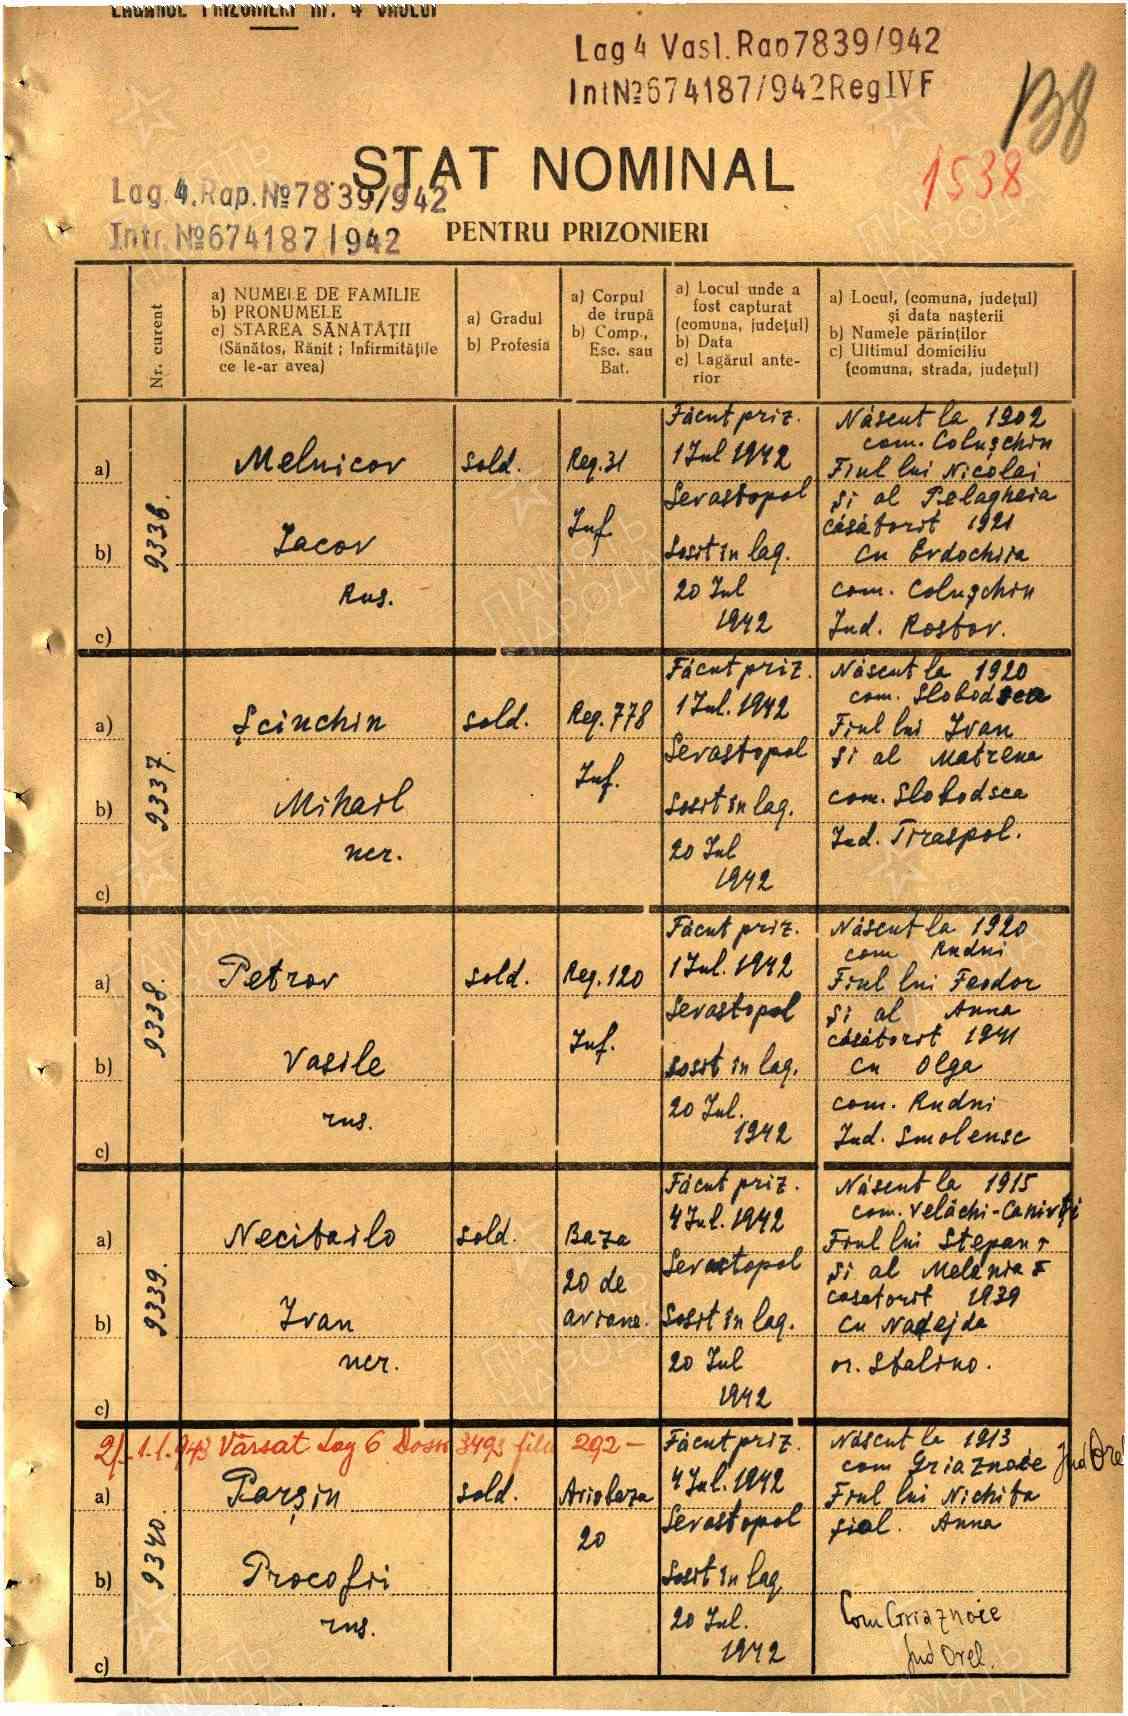 LAGĂRUL PRIZONIERI Nr. 4 VASLUI
Lag 4 Vasl. Rap 7839/942
Int№674187/942 Reg IV F
138
1538
STAT NOMINAL
Lag. 4. Rap. №7839/942
PENTRU PRIZONIERI
Intr. №674187/942
Nr. curent
a) NUMELE DE FAMILIE
b) PRONUMELE
c) STAREA SĂNĂTĂȚII
(Sănătos, Rănit ; Infirmitățile
ce le-ar avea)
a) Gradul
b) Profesia
a) Corpul
de trupă
b) Comp.,
Esc. sau
Bat.
a) Locul unde a
fost capturat
(comuna, județul)
b) Data
c) Lagărul ante-
rior
a) Locul, (comuna, județul)
și data nașterii
b) Numele părinților
c) Ultimul domiciliu
(comuna, strada, județul)
9336.
a)
b)
c)
Melnicov
Iacov
Rus.
sold.
Reg. 31
Inf.
Făcut priz.
1 Iul 1942
Sevastopol
Sosit în lag.
20 Iul
1942
Născut la 1902
com. Colușchin
Fiul lui Nicolai
și al Pelagheia
căsătorit 1921
cu Evdochiia
com. Colușchin
Jud. Rostov.
9337.
a)
b)
c)
Șcinchin
Mihail
ucr.
sold.
Reg. 778
Inf.
Făcut priz.
1 Iul. 1942
Sevastopol
Sosit în lag.
20 Iul
1942
Născut la 1920
com. Slobodsea
Fiul lui Ivan
și al Matrena
com. Slobodsea
Jud. Tiraspol.
9338.
a)
b)
c)
Petrov
Vasile
rus.
sold.
Reg. 120
Inf.
Făcut priz.
1 Iul. 1942
Sevastopol
sosit în lag.
20 Iul.
1942
Născut la 1920
com Rudni
Fiul lui Feodor
și al Anna
căsătorit 1941
cu Olga
com. Rudni
Jud. Smolensc
9339.
a)
b)
c)
Necitailo
Ivan
ucr.
sold.
Baza
20 de
avioane.
Făcut priz.
4 Iul. 1942
Sevastopol
Sosit în lag.
20 Iul
1942
Născut la 1915
com. Velichi-
Fiul lui Stepan
și al Melania
casatorit 1939
cu Nadejda
or. Stalino.
2/ 1.1.943 Vărsat Lag 6 Dosar 3493 fila 292 -
9340.
a)
b)
c)
Parșin
Procofii
rus.
sold.
Aviobaza
20
Făcut priz.
4 Iul. 1942
Sevastopol
Sosit în lag
20 Iul.
1942
Născut la 1913
com Griaznoie Jud Orel
Fiul lui Nichita
și al. Anna
Com Griaznoie
Jud Orel.
ПАМЯТЬ
НАРОДА